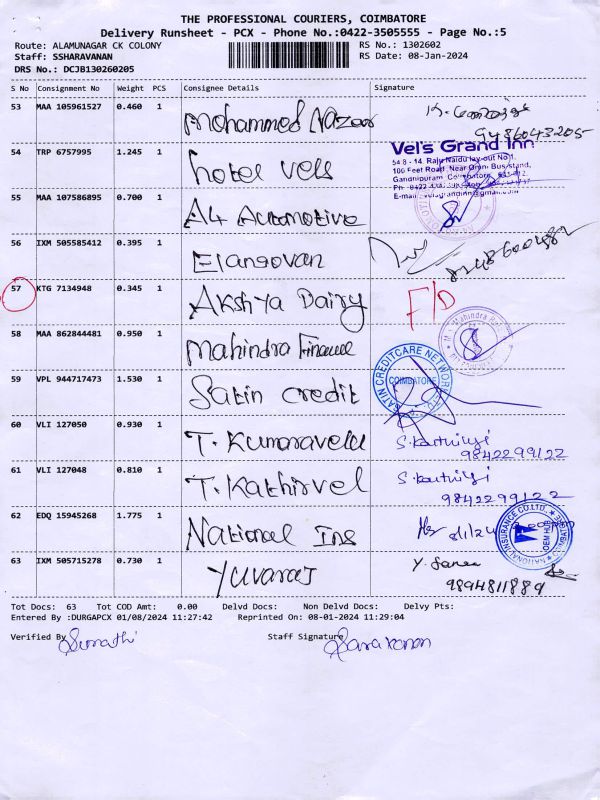 THE PROFESSIONAL COURIERS, COIMBATORE
Delivery Runsheet - PCX - Phone No.:0422-3505555 - Page No.:5
Route: ALAMUNAGAR CK COLONY RS No.: 1302602
Staff: SSHARAVANAN RS Date: 08-Jan-2024
DRS No.: DCJB130260205
S No Consignment No Weight PCS Consignee Details Signature
53 MAA 105961527 0.460 1 Mohammed Nazeer
9486043205
54 TRP 6757995 1.245 1 hotel vels
Vel's Grand Inn
54 8 - 14, Raju Naidu lay-out No 1,
100 Feet Road, Near Omni Bus stand,
Gandhipuram, Coimbatore
55 MAA 107586895 0.700 1 A4 Automotive
56 IXM 505585412 0.395 1 Elangovan
57 KTG 7134948 0.345 1 Akshya Dairy F/D
58 MAA 862844481 0.950 1 Mahindra Finance
59 VPL 944717473 1.530 1 Satin credit
SATIN CREDITCARE NETWORK LTD.
COIMBATORE
60 VLI 127050 0.930 1 T. Kumaravelu
9842299122
61 VLI 127048 0.810 1 T. Kathirvel
9842299122
62 EDQ 15945268 1.775 1 National Ins
NATIONAL INSURANCE CO. LTD.
OEM HUB
63 IXM 505715278 0.730 1 Yuvaraj
9894811889
Tot Docs: 63 Tot COD Amt: 0.00 Delvd Docs: Non Delvd Docs: Delvy Pts:
Entered By :DURGAPCX 01/08/2024 11:27:42 Reprinted On: 08-01-2024 11:29:04
Verified By Sumathi Staff Signature Saravanan